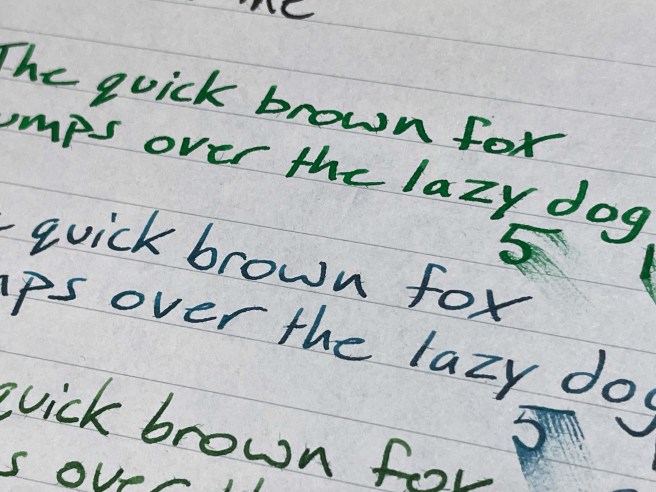 The quick brown fox
umps over the lazy dog
5
quick brown fox
mps over the lazy dog
5
quick brown fox
s over